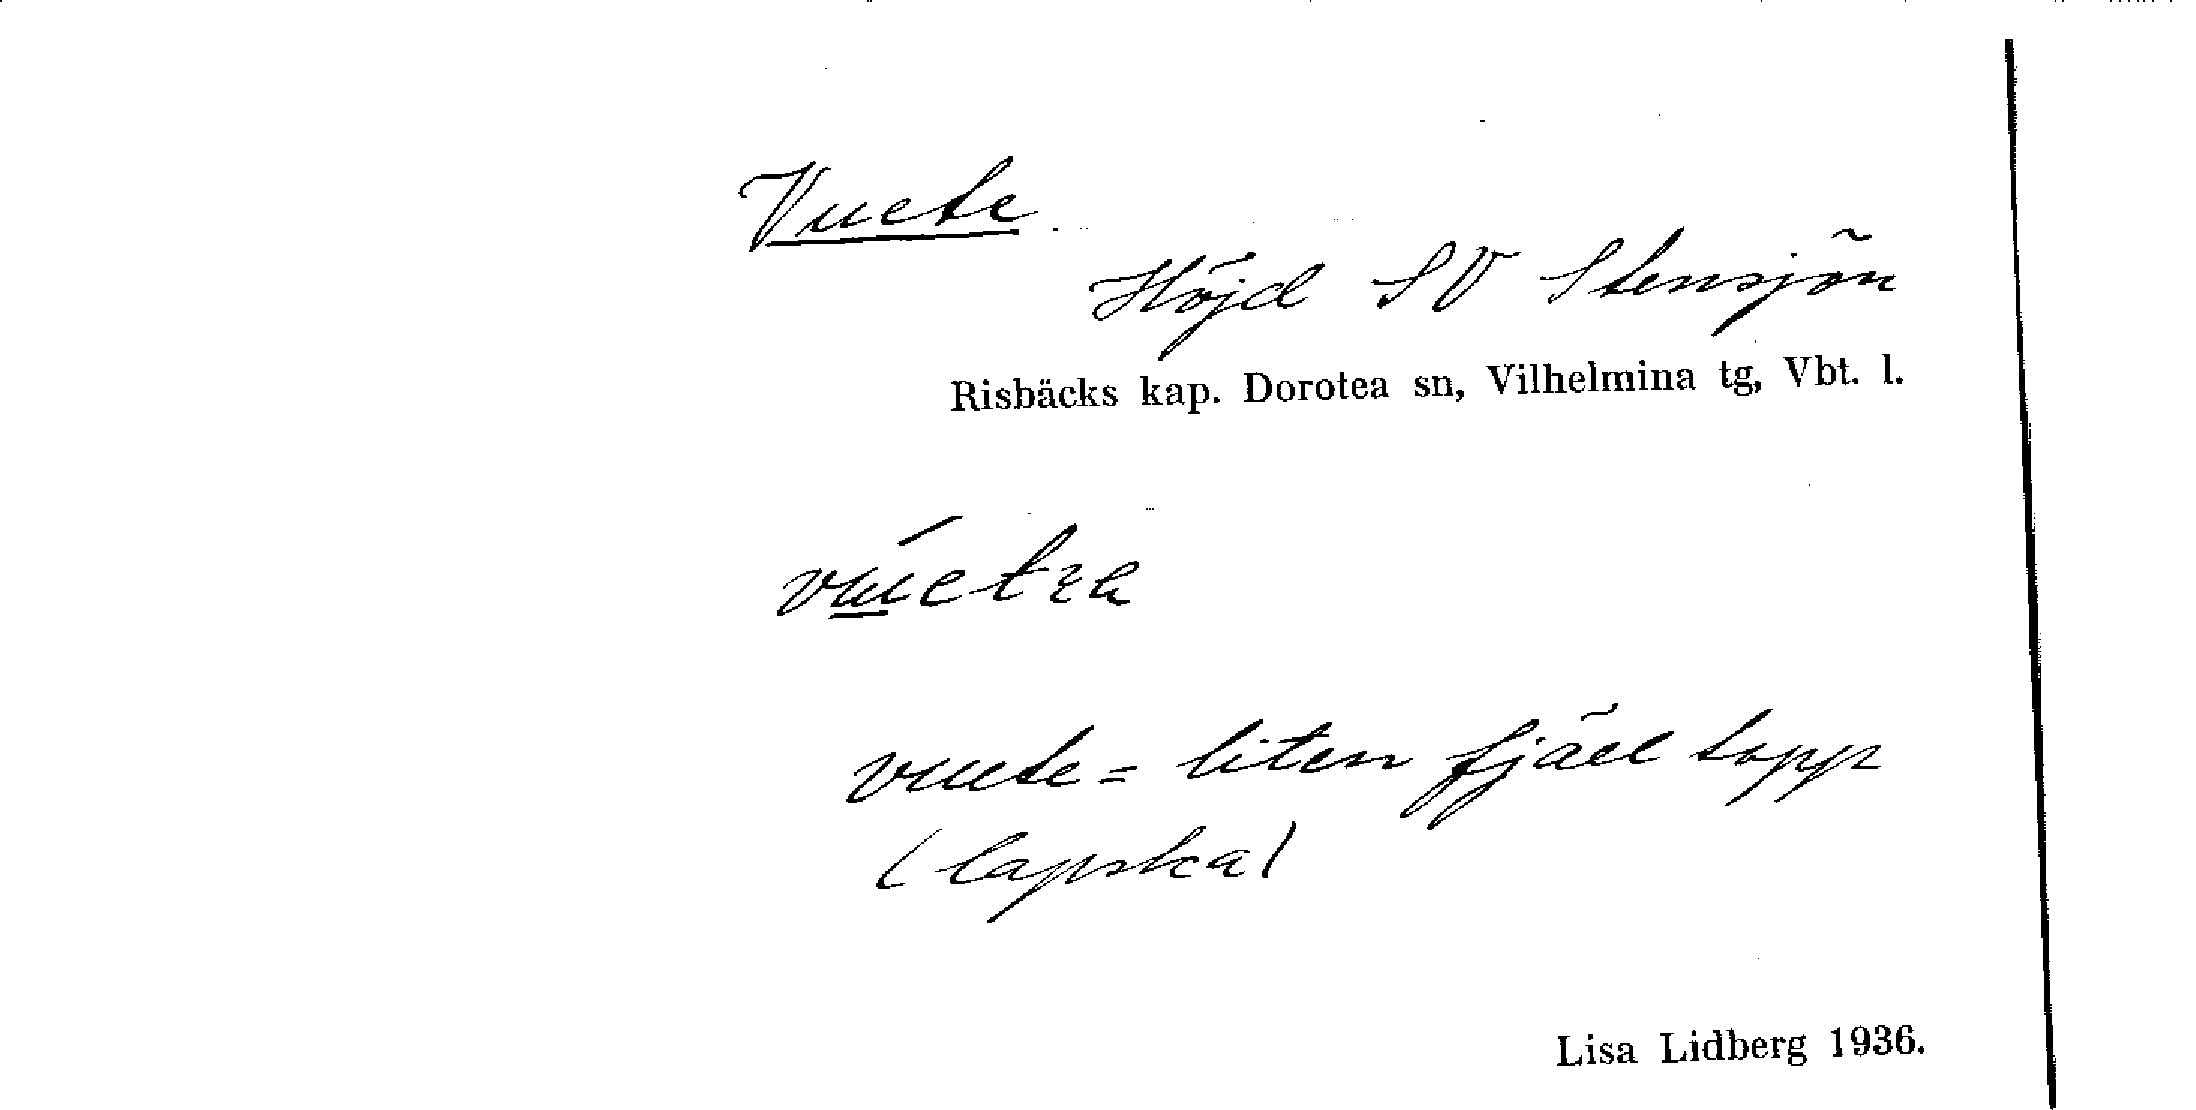 Vuete
Höjd SV Stensjön
Risbäcks kap. Dorotea sn, Vilhelmina tg, Vbt. l.
vuete = liten fjäll topp
(lapska)
Lisa Lidberg 1936.